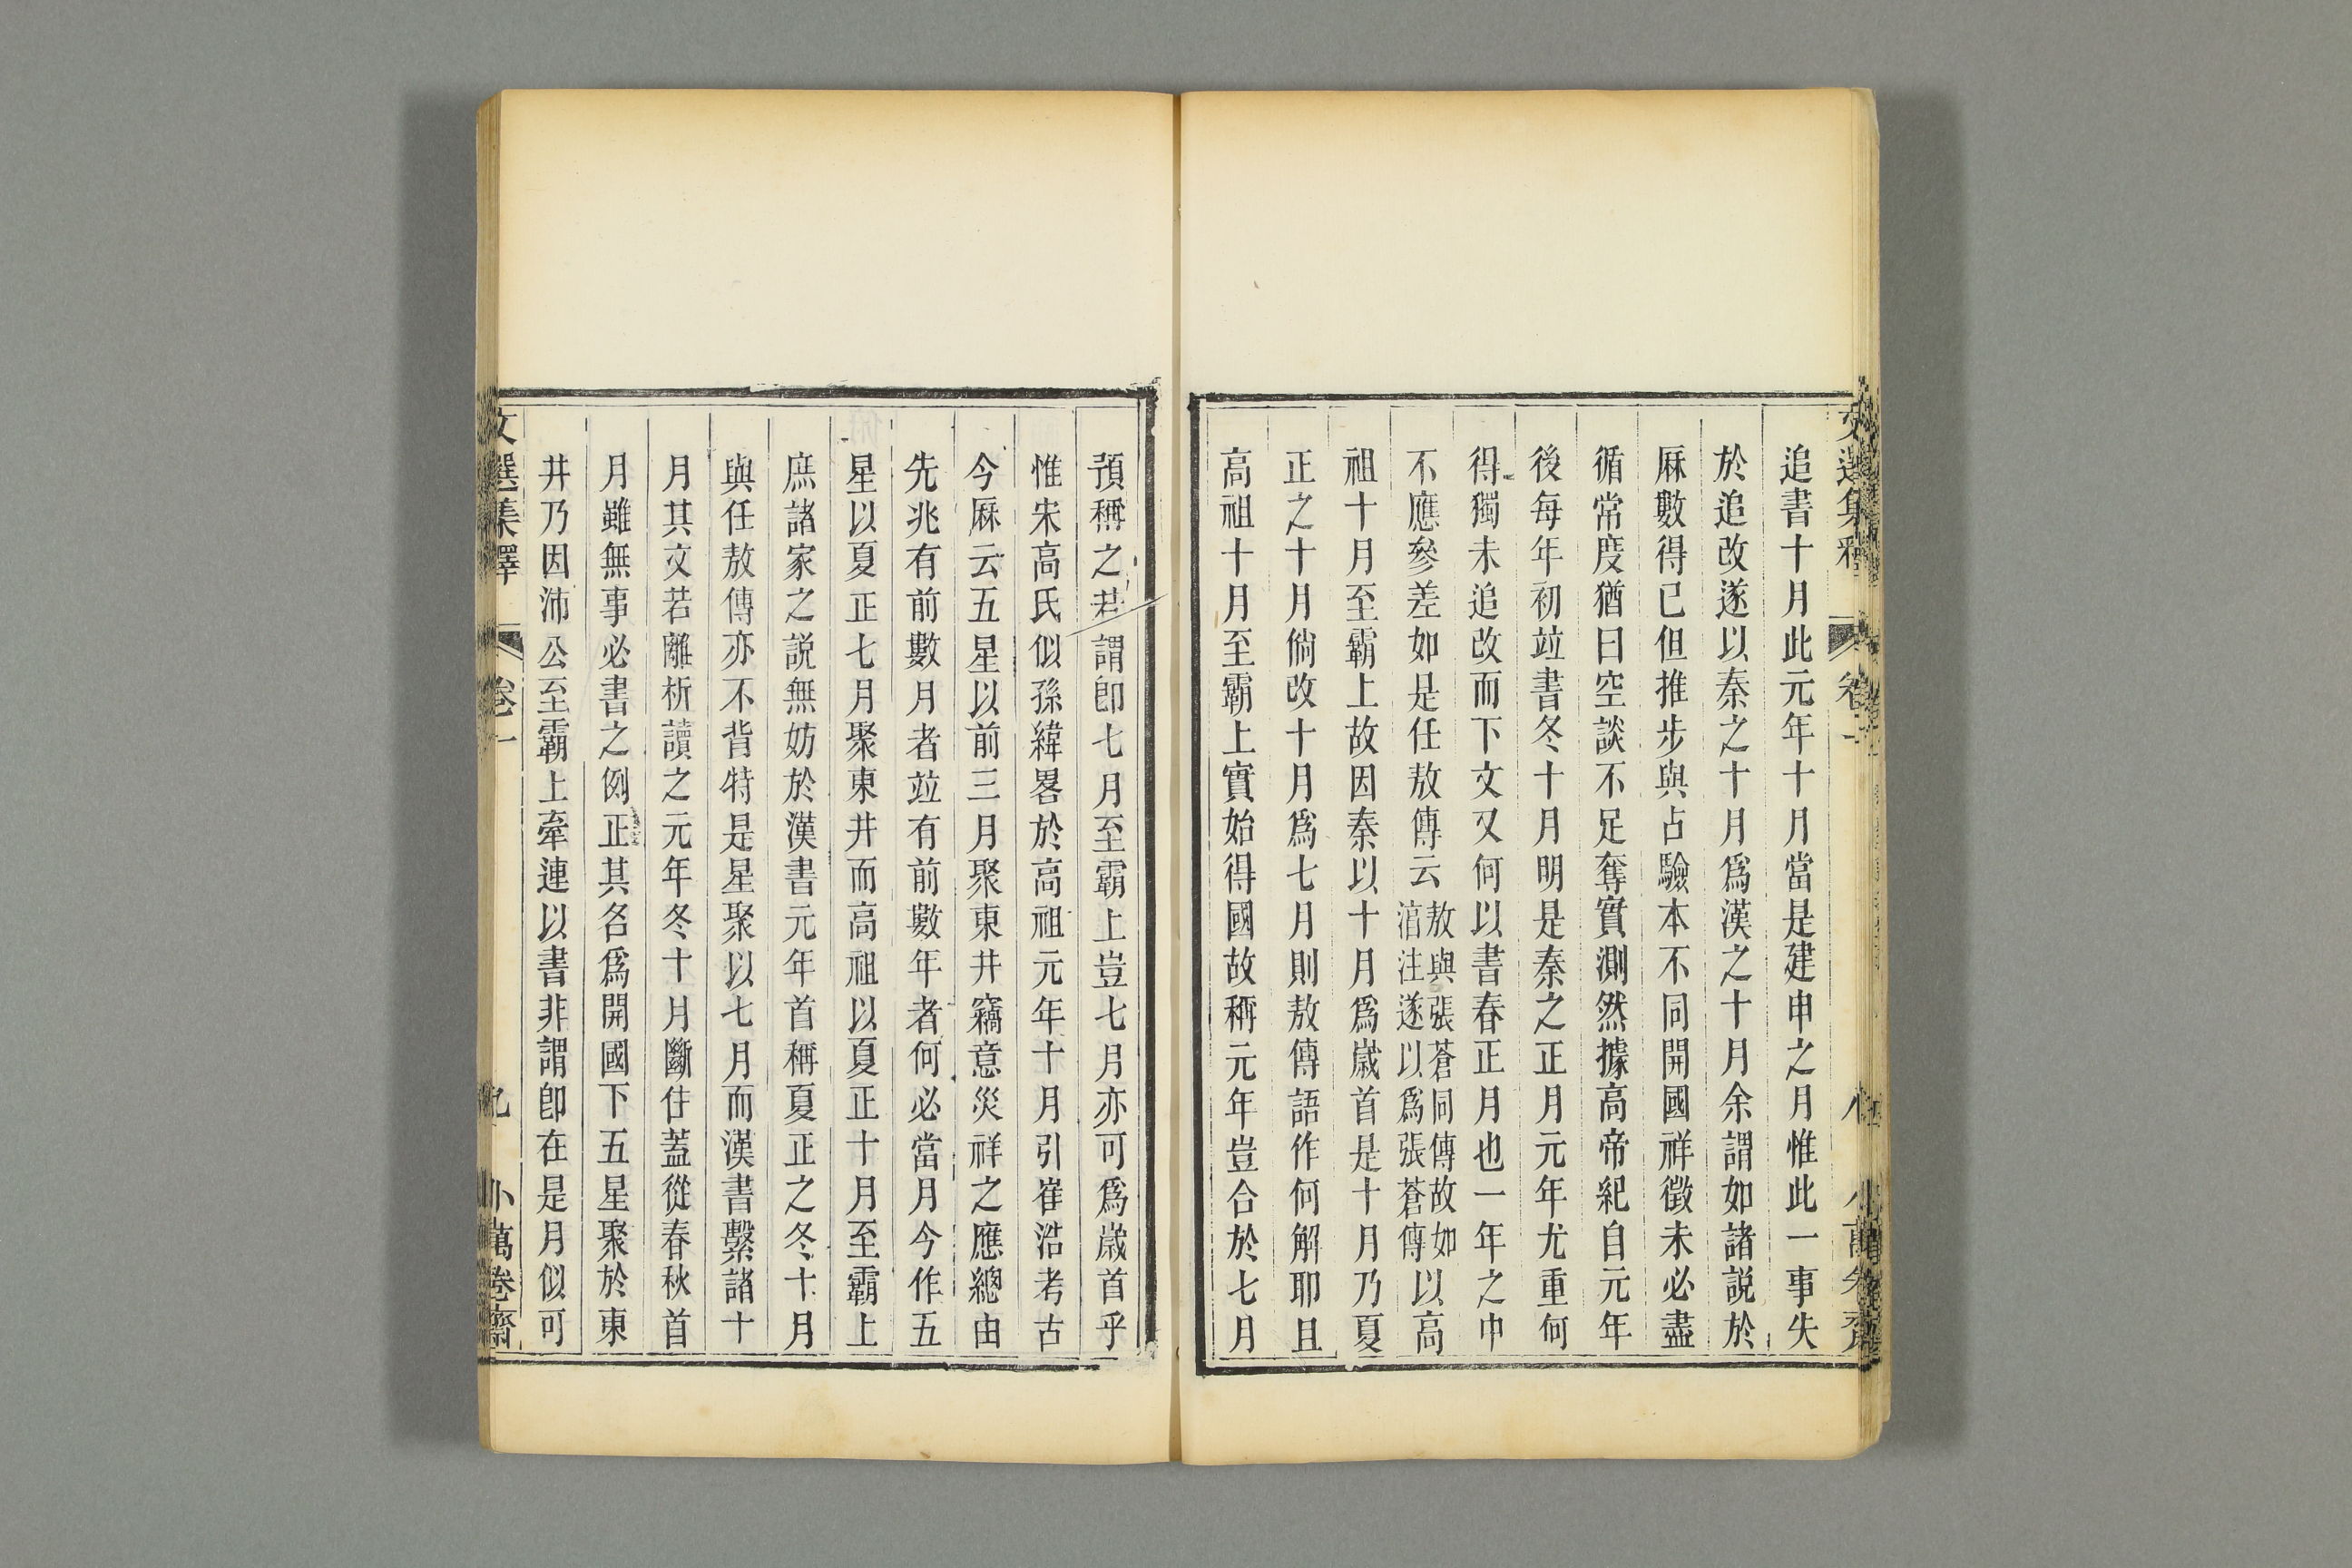 追書十月此元年十月當是建申之月惟此一事失
於追改遂以秦之十月爲漢之十月余謂如諸説於
厤數得已但推步與占驗本不同開國祥徵未必盡
循常度猶曰空談不足奪實測然據高帝紀自元年
後每年初竝書冬十月明是秦之正月元年尤重何
得獨未追改而下文又何以書春正月也一年之中
不應參差如是任敖傳云敖與張蒼同傳故如淳注遂以爲張蒼傳以高
祖十月至霸上故因秦以十月爲歲首是十月乃夏
正之十月倘改十月爲七月則敖傳語作何解耶且
高祖十月至霸上實始得國故稱元年豈合於七月
預稱之若謂卽七月至霸上豈七月亦可爲歲首乎
惟宋高氏似孫緯畧於高祖元年十月引崔浩考古
今厤云五星以前三月聚東井竊意災祥之應總由
先兆有前數月者竝有前數年者何必當月今作五
星以夏正七月聚東井而高祖以夏正十月至霸上
庶諸家之説無妨於漢書元年首稱夏正之冬十月
與任敖傳亦不背特是星聚以七月而漢書繫諸十
月其文若離析讀之元年冬十月斷住蓋從春秋首
月雖無事必書之例正其名爲開國下五星聚於東
井乃因沛公至霸上牽連以書非謂卽在是月似可
文選集釋 卷一 九 小萬卷齋